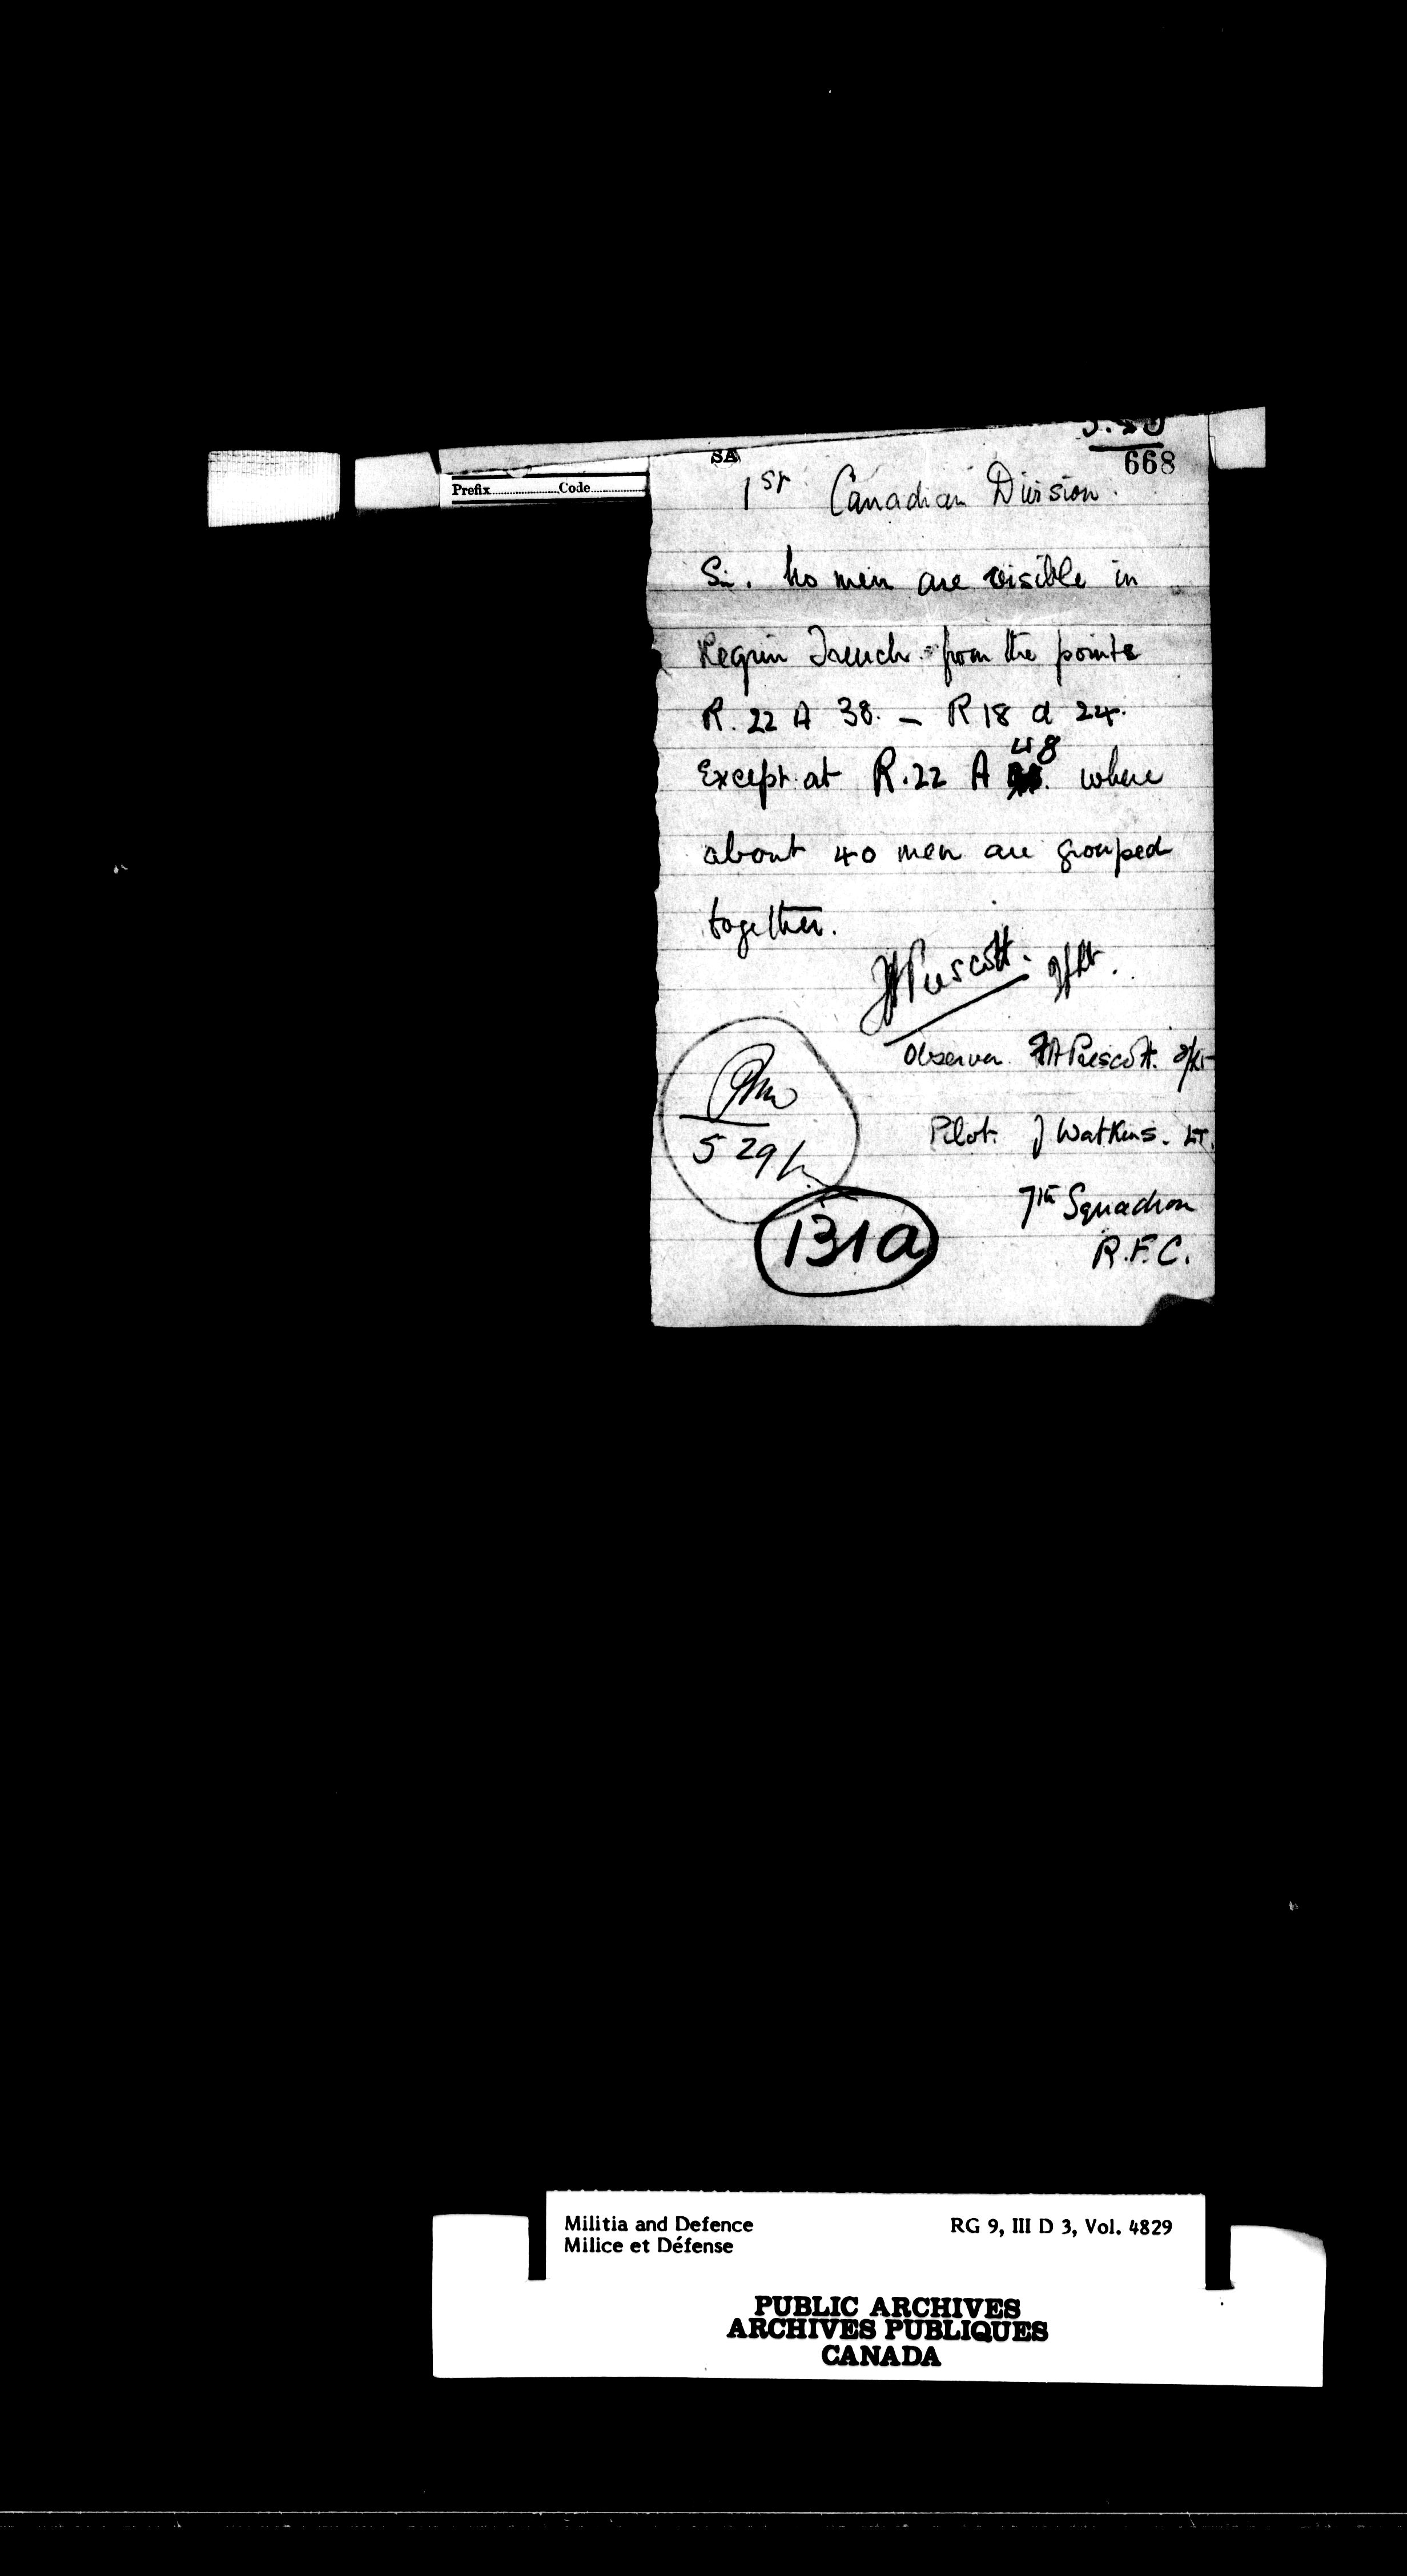 668
SA
Prefix..................Code..................
1st Canadian Division.
Sir. No men are visible in
Regina Trench from the points
R.22 A 38. – R 18 d 24.
Except at R.22 A 48 where
about 40 men are grouped
together.
Prescott. 2/Lt.
Observer FA Prescott. 2/Lt
Pilot. J Watkins. LT.
7th Squadron
R.F.C.
5 29
131a
Militia and Defence
Milice et Défense
RG 9, III D 3, Vol. 4829
PUBLIC ARCHIVES
ARCHIVES PUBLIQUES
CANADA